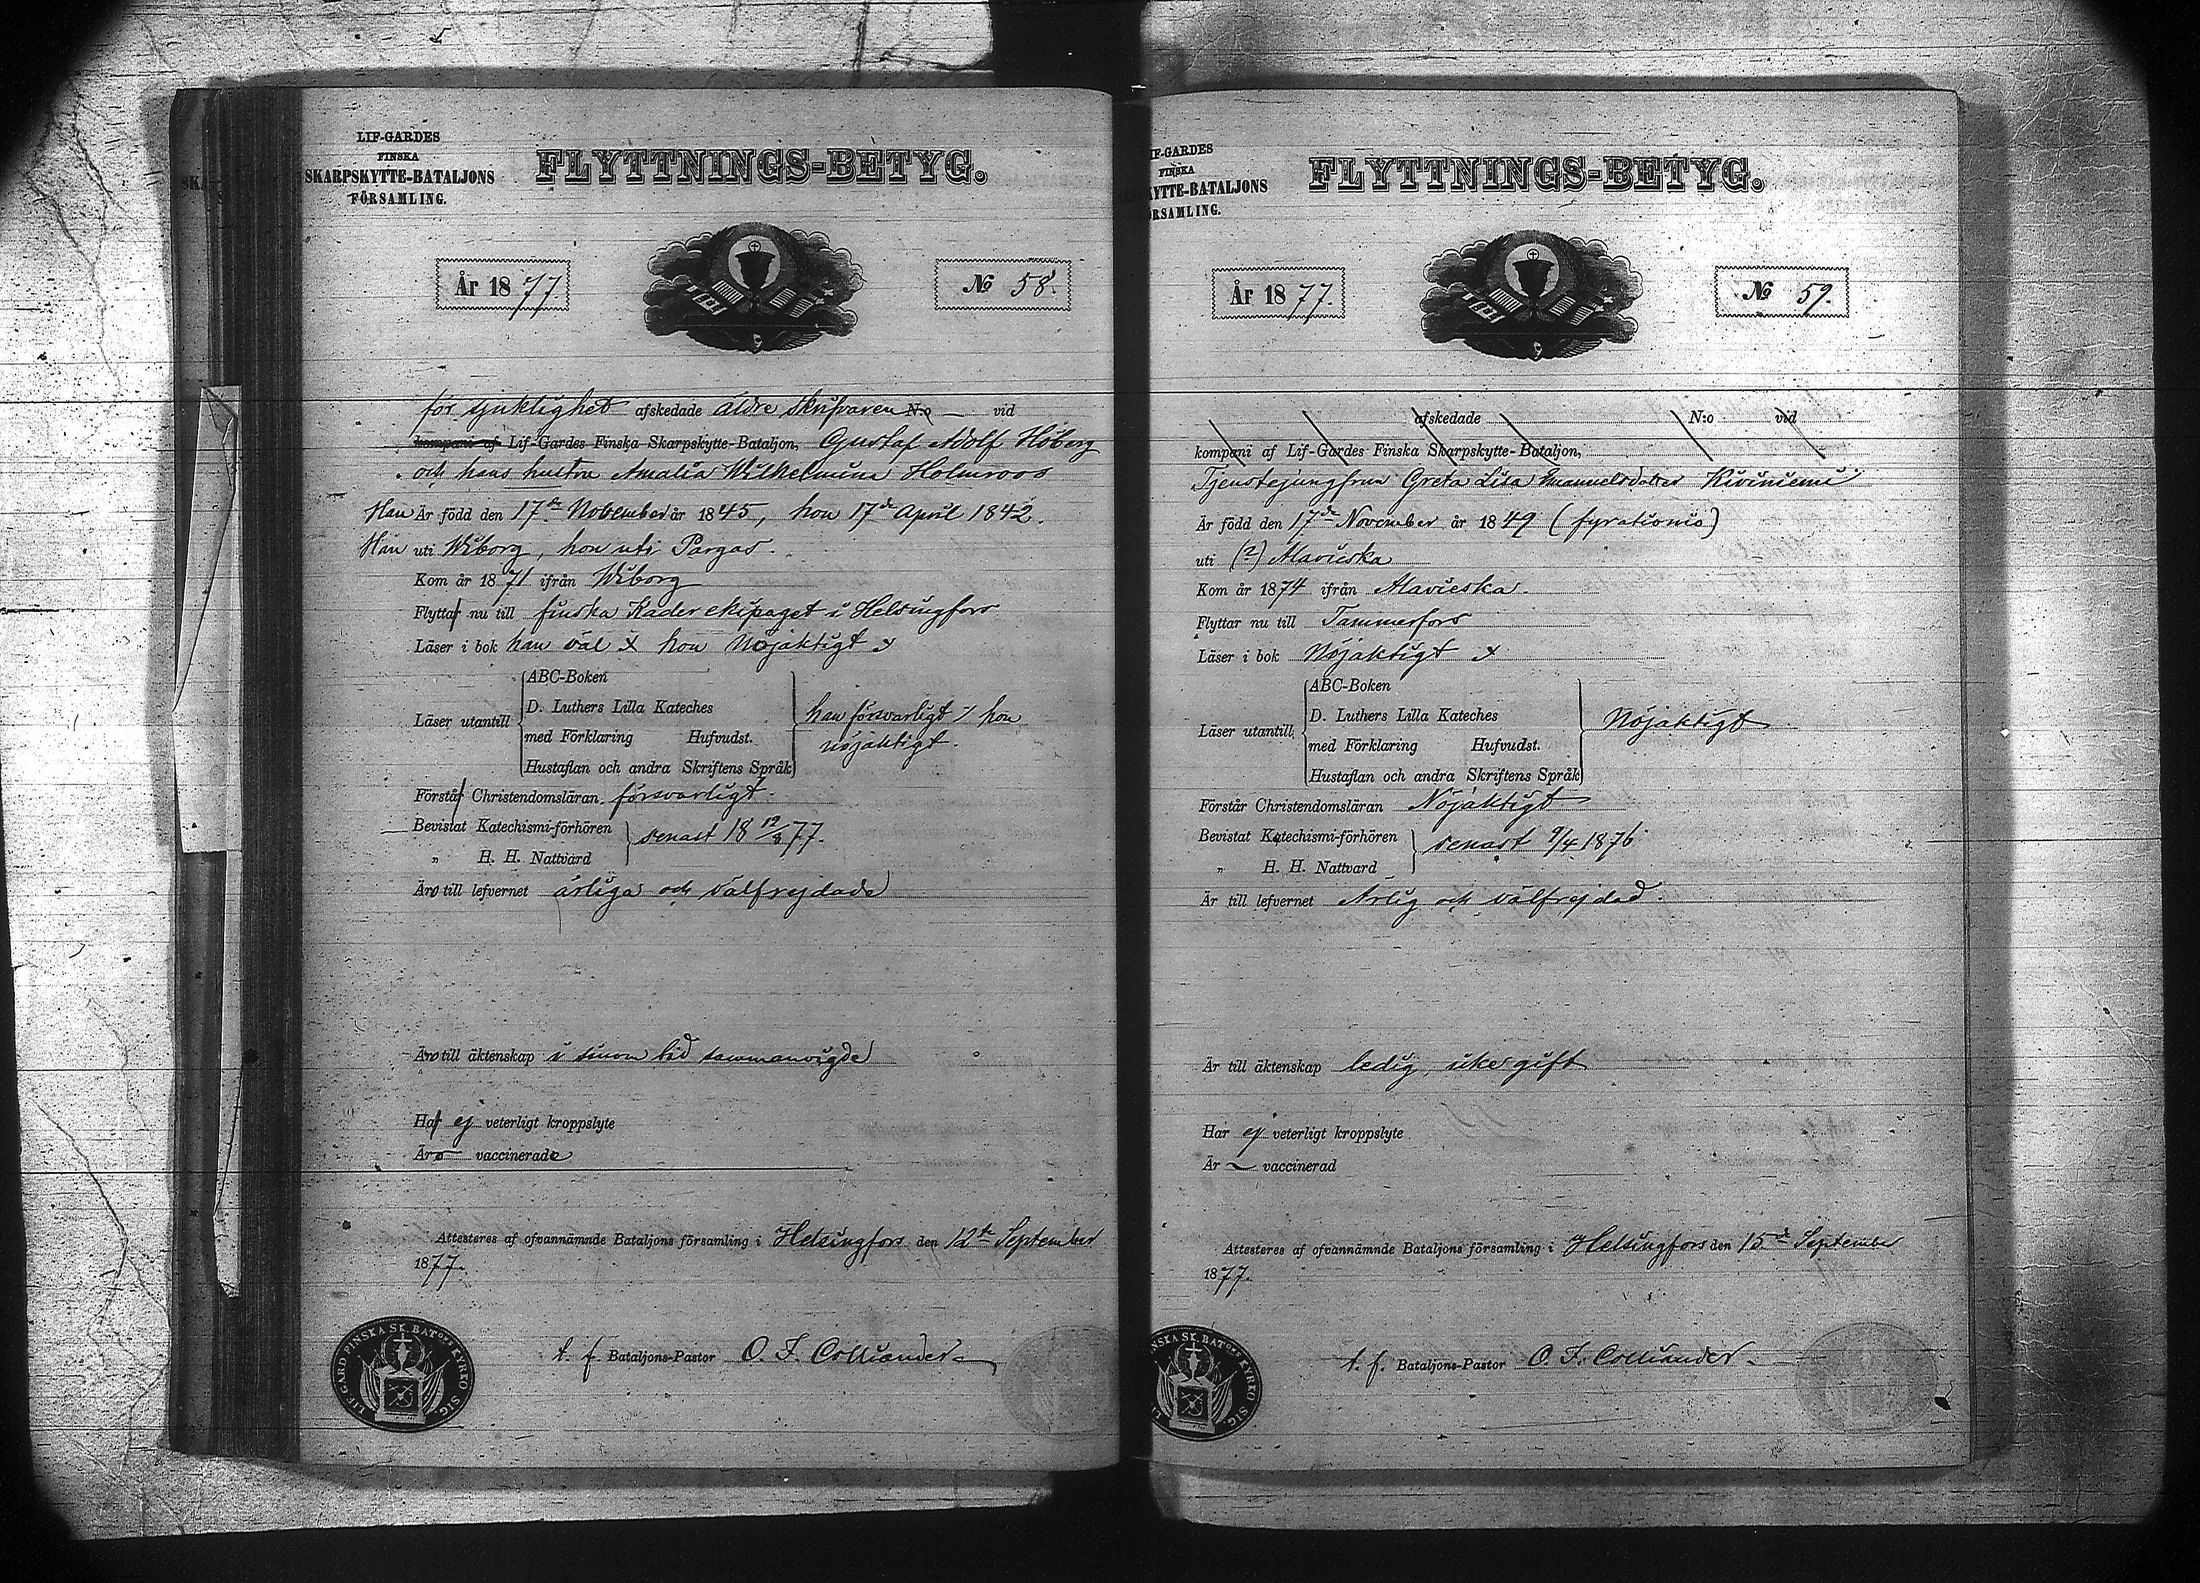 LIF-GARDES
FINSKA
SKARPSKYTTE-BATALJONS
FÖRSAMLING.
FLYTTNINGS-BETYG.
År 1877.
No 58.
för sjuklighet afskedade äldre skrifvaren N:o — vid
kompani af Lif-Gardes Finska Skarpskytte-Bataljon, Gustaf Adolf Höberg
och hans hustru Amalia Wilhelmina Holmroos
Han Är född den 17de November år 1845, hon 17de April 1842.
Han uti Wiborg, hon uti Pargas.
Kom år 1871 ifrån Wiborg
Flyttar nu till finska Kader ekipaget i Helsingfors
Läser i bok han väl x hon Nöjaktigt x
ABC-Boken
D. Luthers Lilla Kateches
Läser utantill
med Förklaring Hufvudst.
Hustaflan och andra Skriftens Språk
han försvarligt / hon
nöjaktigt.
Förstår Christendomsläran försvarligt.
Bevistat Katechismi-förhören
senast 18 12/8 77.
„ H. H. Nattvard
Äro till lefvernet ärliga och välfrejdade
Äro till äktenskap i sinom tid sammanvigde
Har ej veterligt kroppslyte
Äro — vaccinerade
Attesteres af ofvannämnde Bataljons församling i Helsingfors den 12te September
1877.
t. f. Bataljons-Pastor O. F. Colliander
LIF GARD FINSKA SK. BATONS KYRKO SIG.
IF-GARDES
FINSKA
YTTE-BATALJONS
RSAMLING.
FLYTTNINGS-BETYG.
År 1877.
No 59.
afskedade N:o vid
kompani af Lif-Gardes Finska Skarpskytte-Bataljon,
Tjenstejungfrun Greta Lisa Emanuelsdotter Kiviniemi
Är född den 17de November år 1849 (fyrationio)
uti (?) Alavieska
Kom år 1874 ifrån Alavieska.
Flyttar nu till Tammerfors
Läser i bok Nöjaktigt x
ABC-Boken
D. Luthers Lilla Kateches
Läser utantill
med Förklaring Hufvudst.
Hustaflan och andra Skriftens Språk
Nöjaktigt
Förstår Christendomsläran Nöjaktigt
Bevistat Katechismi-förhören
senast 9/4 1876
„ H. H. Nattvard
Är till lefvernet Ärlig och välfrejdad.
Är till äktenskap ledig, icke gift
Har ej veterligt kroppslyte
Är — vaccinerad
Attesteres af ofvannämnde Bataljons församling i Helsingfors den 15de September
1877.
t. f. Bataljons-Pastor O. F. Colliander.
NSKA SK. BATONS KYRKO SIG.